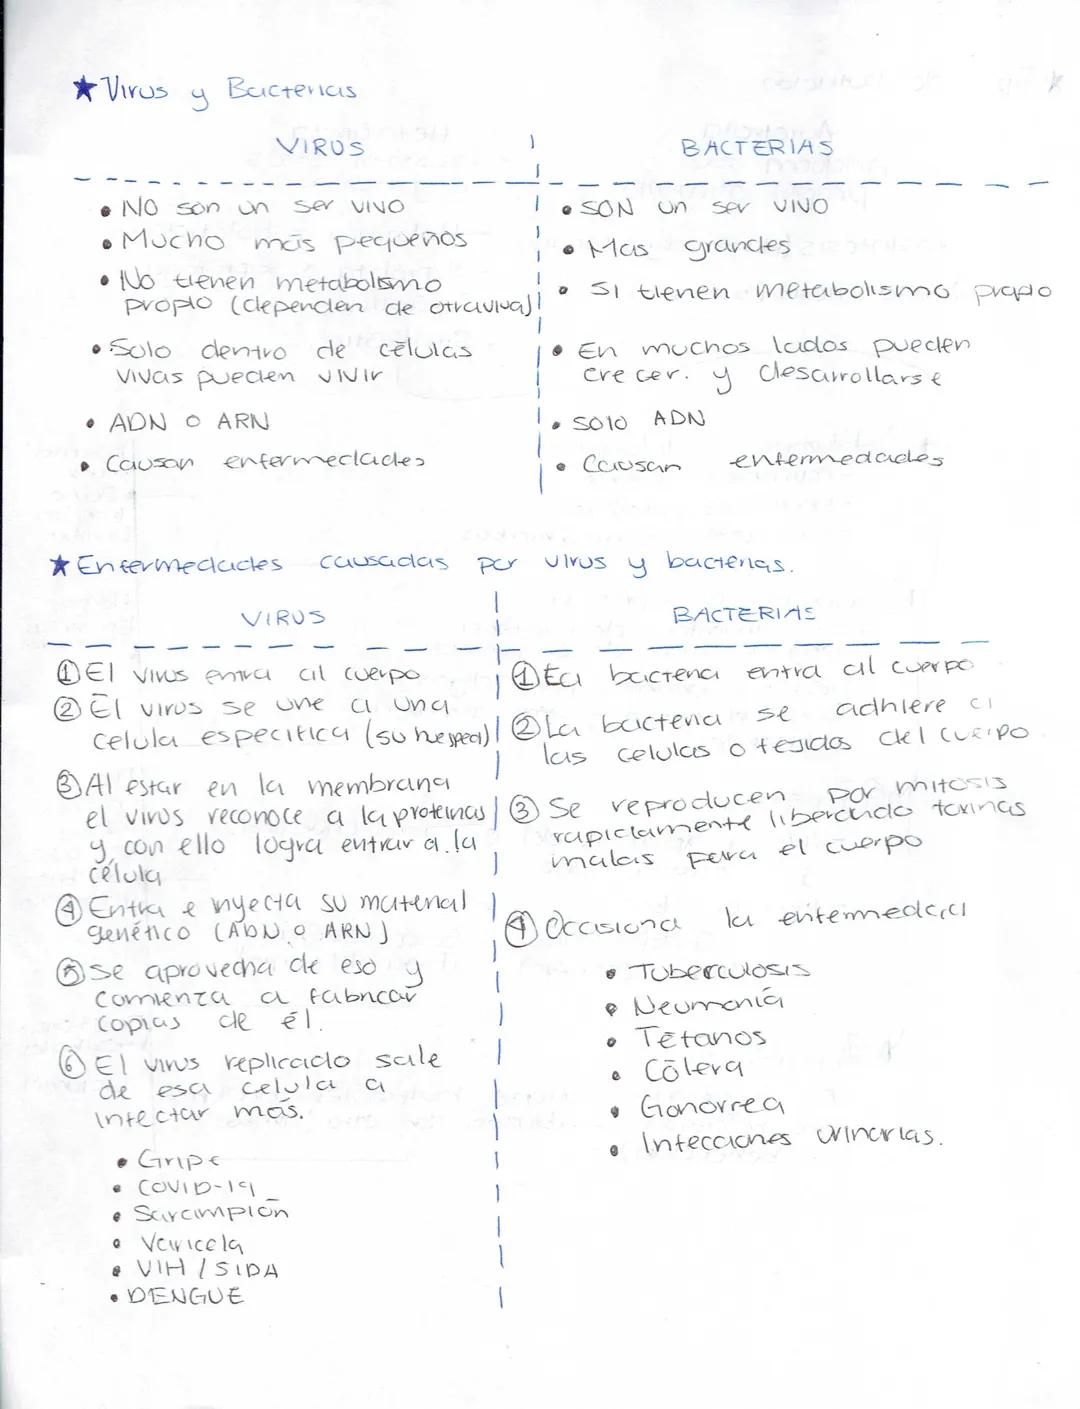 ★ Virus y Bacterias
VIRUS
• NO son un ser vivo
• Mucho más pequeños
• No tienen metabolismo
propio (dependen de otra viva)
• Solo dentro de células
vivas pueden vivir
• ADN o ARN
• Causan enfermedades
BACTERIAS
• SON un ser vivo
• Mas grandes
• SI tienen metabolismo propio
• En muchos lados pueden
crecer. y desarrollarse
• solo ADN
• Causan enfermedades
★ Enfermedades causadas por virus y bacterias.
VIRUS
① El virus entra al cuerpo
② El virus se une a una
celula especifica (su huesped)
③ Al estar en la membrana
el virus reconoce a la proteinas
y con ello logra entrar a la
célula
④ Entra e inyecta su material
genético (ADN o ARN)
⑤ Se aprovecha de eso y
comienza a fabricar
copias de él.
⑥ El virus replicado sale
de esa celula a
infectar más.
• Gripe
• COVID-19
• Sarampión
• Varicela
• VIH / SIDA
• DENGUE
BACTERIAS
① La bacteria entra al cuerpo
② La bacteria se adhiere a
las celulas o tejidos del cuerpo
③ Se reproducen por mitosis
rapidamente liberando toxinas
malas para el cuerpo
④ Occasiona la enfermedad
• Tuberculosis
• Neumonía
• Tétanos
• Cólera
• Gonorrea
• Infecciones urinarias.